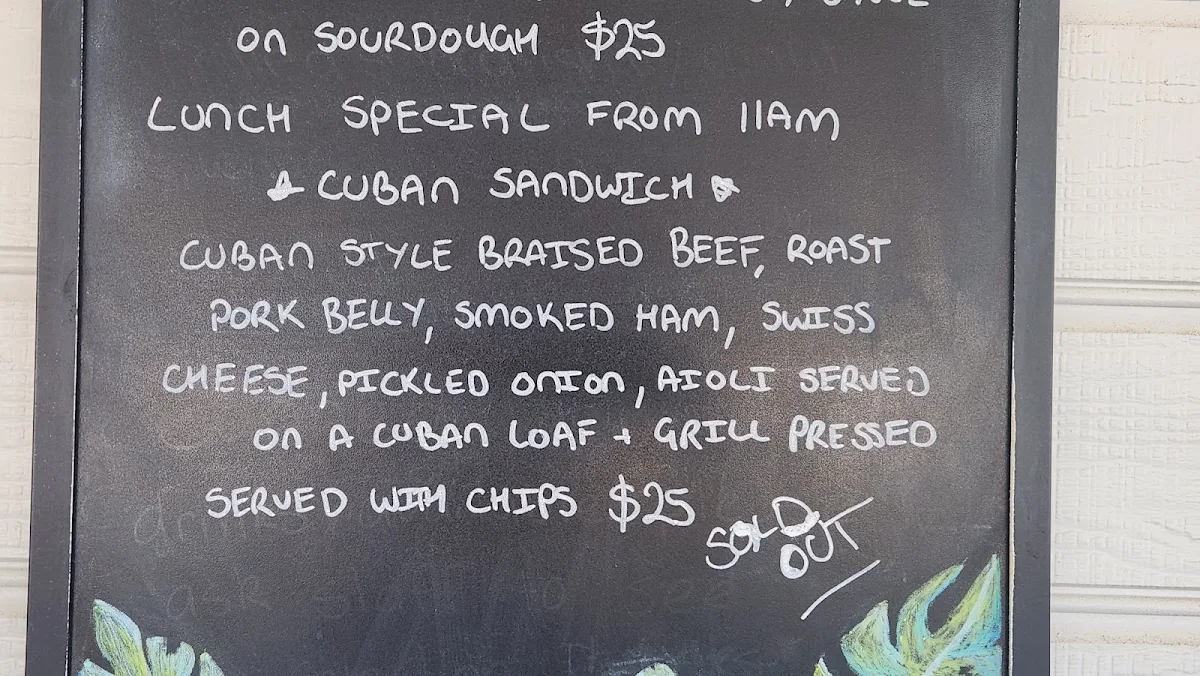 on SOURDOUGH $25
LUNCH SPECIAL FROM 11AM
CUBAN SANDWICH
CUBAN STYLE BRAISED BEEF, ROAST
PORK BELLY, SMOKED HAM, SWISS
CHEESE, PICKLED ONION, AIOLI SERVED
ON A CUBAN LOAF + GRILL PRESSED
SERVED WITH CHIPS $25
SOLD
OUT
ask
see